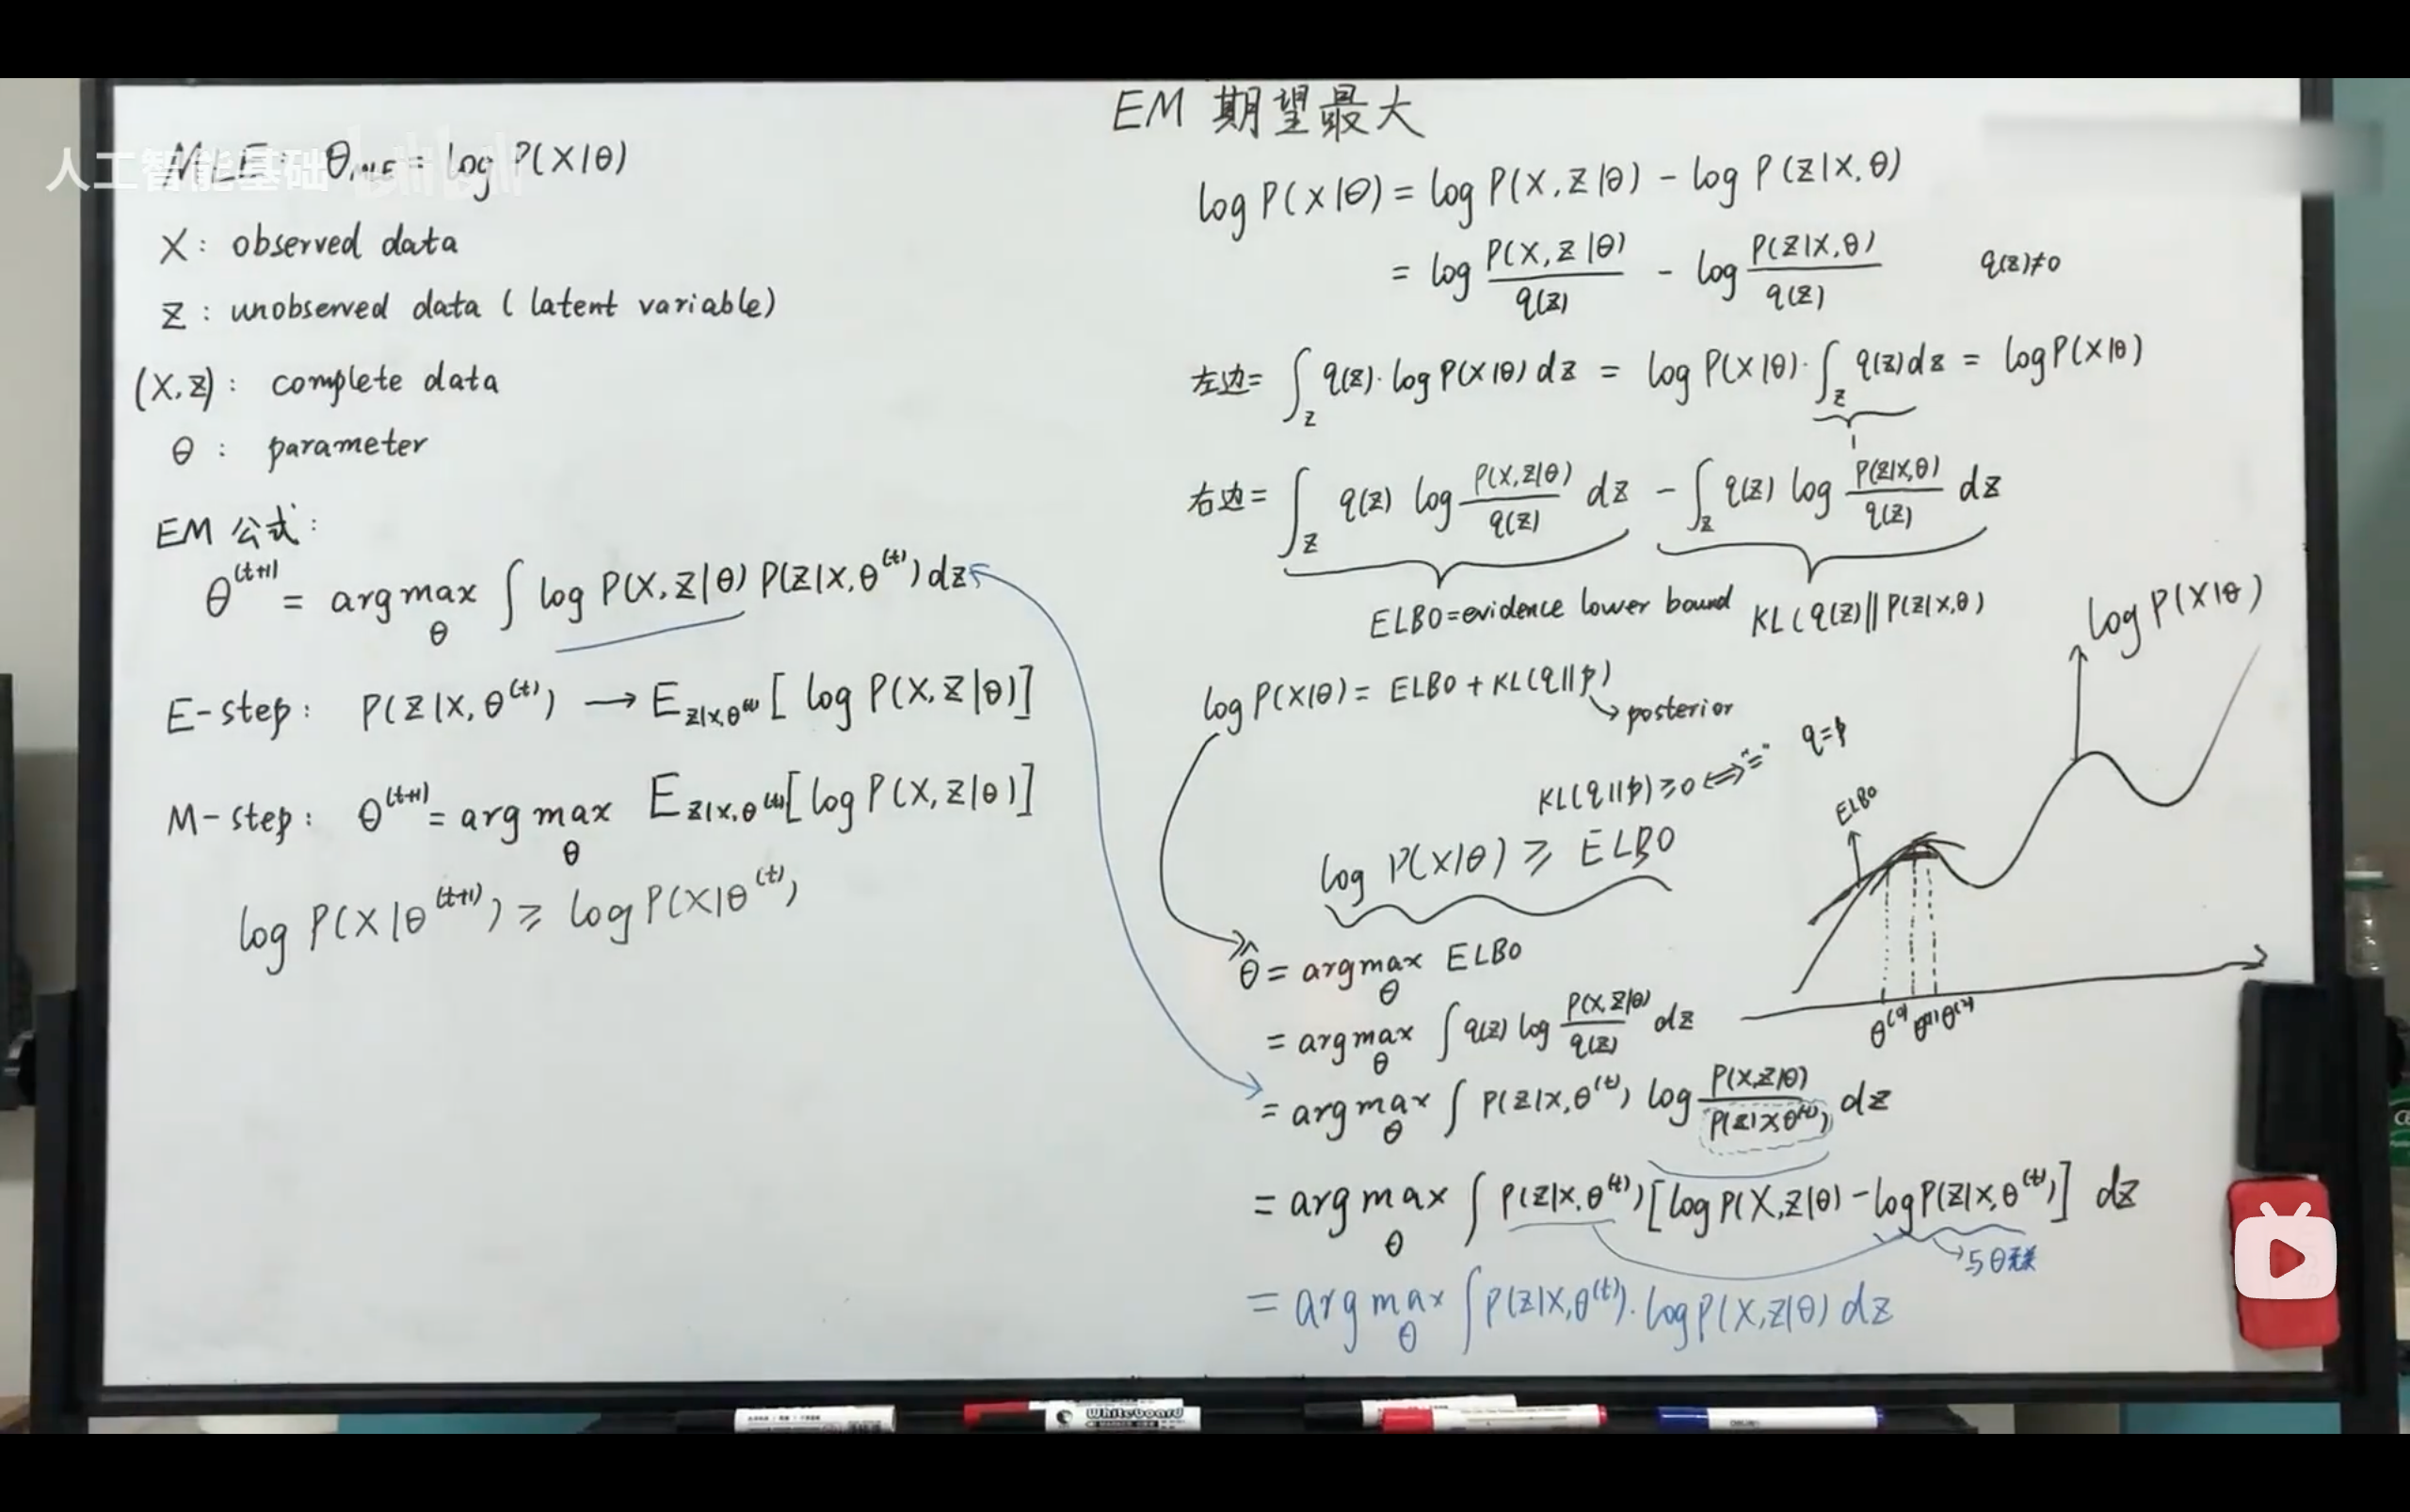 EM 期望最大
人工智能基础
MLE: θ_MLE = log P(X|θ)
X: observed data
Z: unobserved data (latent variable)
(X,Z): complete data
θ: parameter
EM 公式:
θ^(t+1) = arg max_θ ∫ log P(X,Z|θ) P(Z|X,θ^(t)) dz
E-step: P(Z|X,θ^(t)) → E_{Z|X,θ^(t)} [log P(X,Z|θ)]
M-step: θ^(t+1) = arg max_θ E_{Z|X,θ^(t)} [log P(X,Z|θ)]
log P(X|θ^(t+1)) ≥ log P(X|θ^(t))
log P(X|θ) = log P(X,Z|θ) - log P(Z|X,θ)
= log P(X,Z|θ)/q(z) - log P(Z|X,θ)/q(z) q(z)≠0
左边 = ∫_z q(z)·log P(X|θ) dz = log P(X|θ)·∫_z q(z)dz = log P(X|θ)
1
右边 = ∫_z q(z) log P(X,Z|θ)/q(z) dz - ∫_z q(z) log P(Z|X,θ)/q(z) dz
ELBO=evidence lower bound KL(q(z)||P(Z|X,θ)
log P(X|θ) = ELBO + KL(q||p)
posterior
KL(q||p)≥0 ⇔ "=" q=p
log P(X|θ) ≥ ELBO
θ̂ = argmax_θ ELBO
= argmax_θ ∫ q(z) log P(X,Z|θ)/q(z) dz
= argmax_θ ∫ P(Z|X,θ^(t)) log P(X,Z|θ)/P(Z|Xθ^(t)) dz
= arg max_θ ∫ P(Z|X,θ^(t)) [log P(X,Z|θ) - log P(Z|X,θ^(t))] dz
与θ无关
= arg max_θ ∫ P(Z|X,θ^(t))·log P(X,Z|θ) dz
log P(X|θ)
ELBO
θ^(1) θ^(2)
Whiteboard